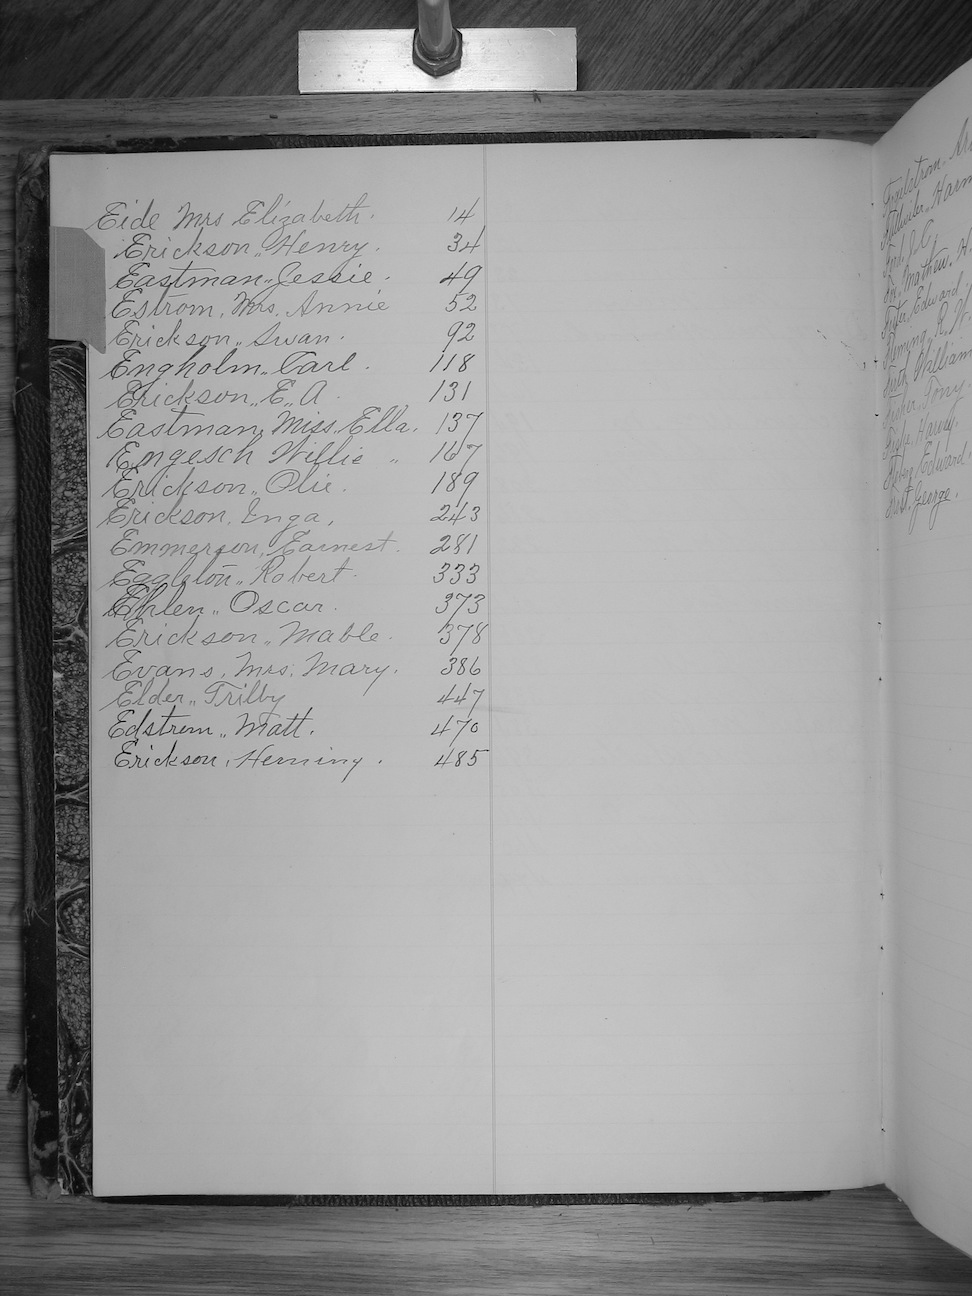 Eide Mrs Elizabeth. 14
Erickson,, Henry. 34
Eastman,, Jessie. 49
Estrom, Mrs, Annie 52
Erickson,, Swan. 92
Engholm,, Carl. 118
Erickson,, E,, A. 131
Eastman, Miss,, Ella. 137
Engesch Willie ,, 167
Erickson,, Olie. 189
Erickson, Inga, 243
Emmerson, Earnest. 281
Eggleton,, Robert. 333
Ehlen,, Oscar. 373
Erickson,, Mable. 378
Evans, Mrs, Mary. 386
Elder,, Trilby 447
Edstrem,, Matt. 470
Erickson, Herning. 485
J. C.
Mathew. H
Edward
R. W
William
Tony
Harvy.
Edward.
George.